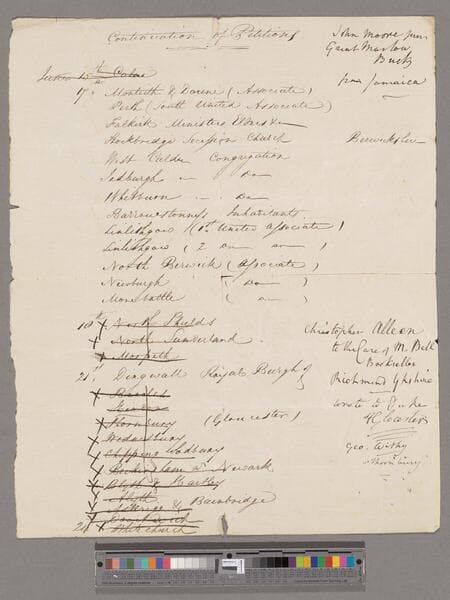 Continuation of Petitions
John Moore Junr
Great Marlow
Bucks
June 15th Colne
from Jamaica
17th Monteith & Dorene (Associate)
Perth (South United Associate)
Falkirk Ministers Elders &c
Stockbridge Secession Church
Berwickshire
West Calder Congregation
Jedburgh — Do —
Whitburn — Do
Barrowstonness Inhabitants
Linlithgow (1st United Associate)
Linlithgow (2 do do)
North Berwick (Associate)
Newburgh (Do)
Morebattle (do)
18th North Shields
North Sunderland
Morpeth
21st Dingwall Royal Burgh of
Thornbury (Gloucester)
Wednesbury
Chipping Sodbury
Newark
Blyth & Hartley
Alyth
& Bainbridge
Whitchurch
Christopher Alleon
to the Care of M. Bell
Bookseller
Richmond Ykshire
wrote to
Gloucester
Geo. Withy
Thornbury